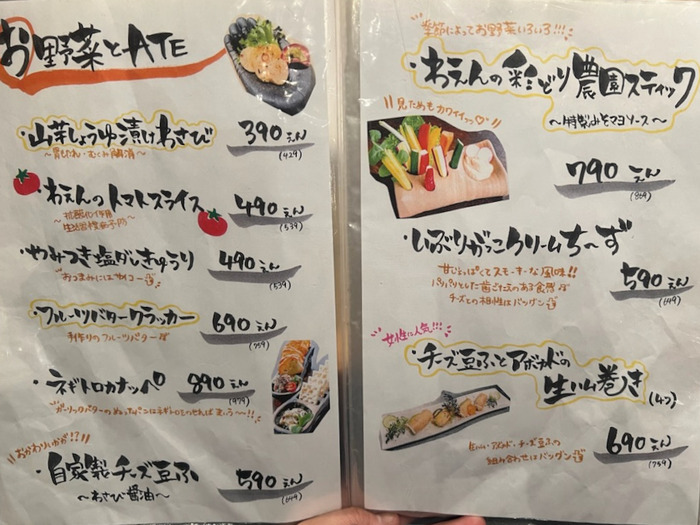 お野菜とATE
山芋しょうゆ漬けわさび
390えん
(429)
〜肩こり・むくみ解消〜
わえんのトマトスライス
490えん
(539)
やみつき塩ダレきゅうり
490えん
(539)
おつまみには
フルーツバタークラッカー
690えん
(759)
手作りのフルーツバター
ネギトロカナッペ
890えん
(979)
ガーリックバターの
おかわりいかが!?
自家製チーズ豆ふ
〜わさび醤油〜
590えん
(649)
季節によってお野菜いろいろ!!!
・わえんの彩どり農園スティック
〜特製みそマヨソース〜
見ためもカワイイッ♡
790えん
(869)
・いぶりがっこクリームち〜ず
甘じょっぱくてスモーキーな風味!!
パリパリとした歯ごたえのある食感
チーズとの相性はバツグン
590えん
(649)
女性に人気!!!
・チーズ豆ふとアボカドの
生ハム巻き
690えん
(759)
生ハム・アボカド・チーズ豆ふの
組み合わせはバツグン